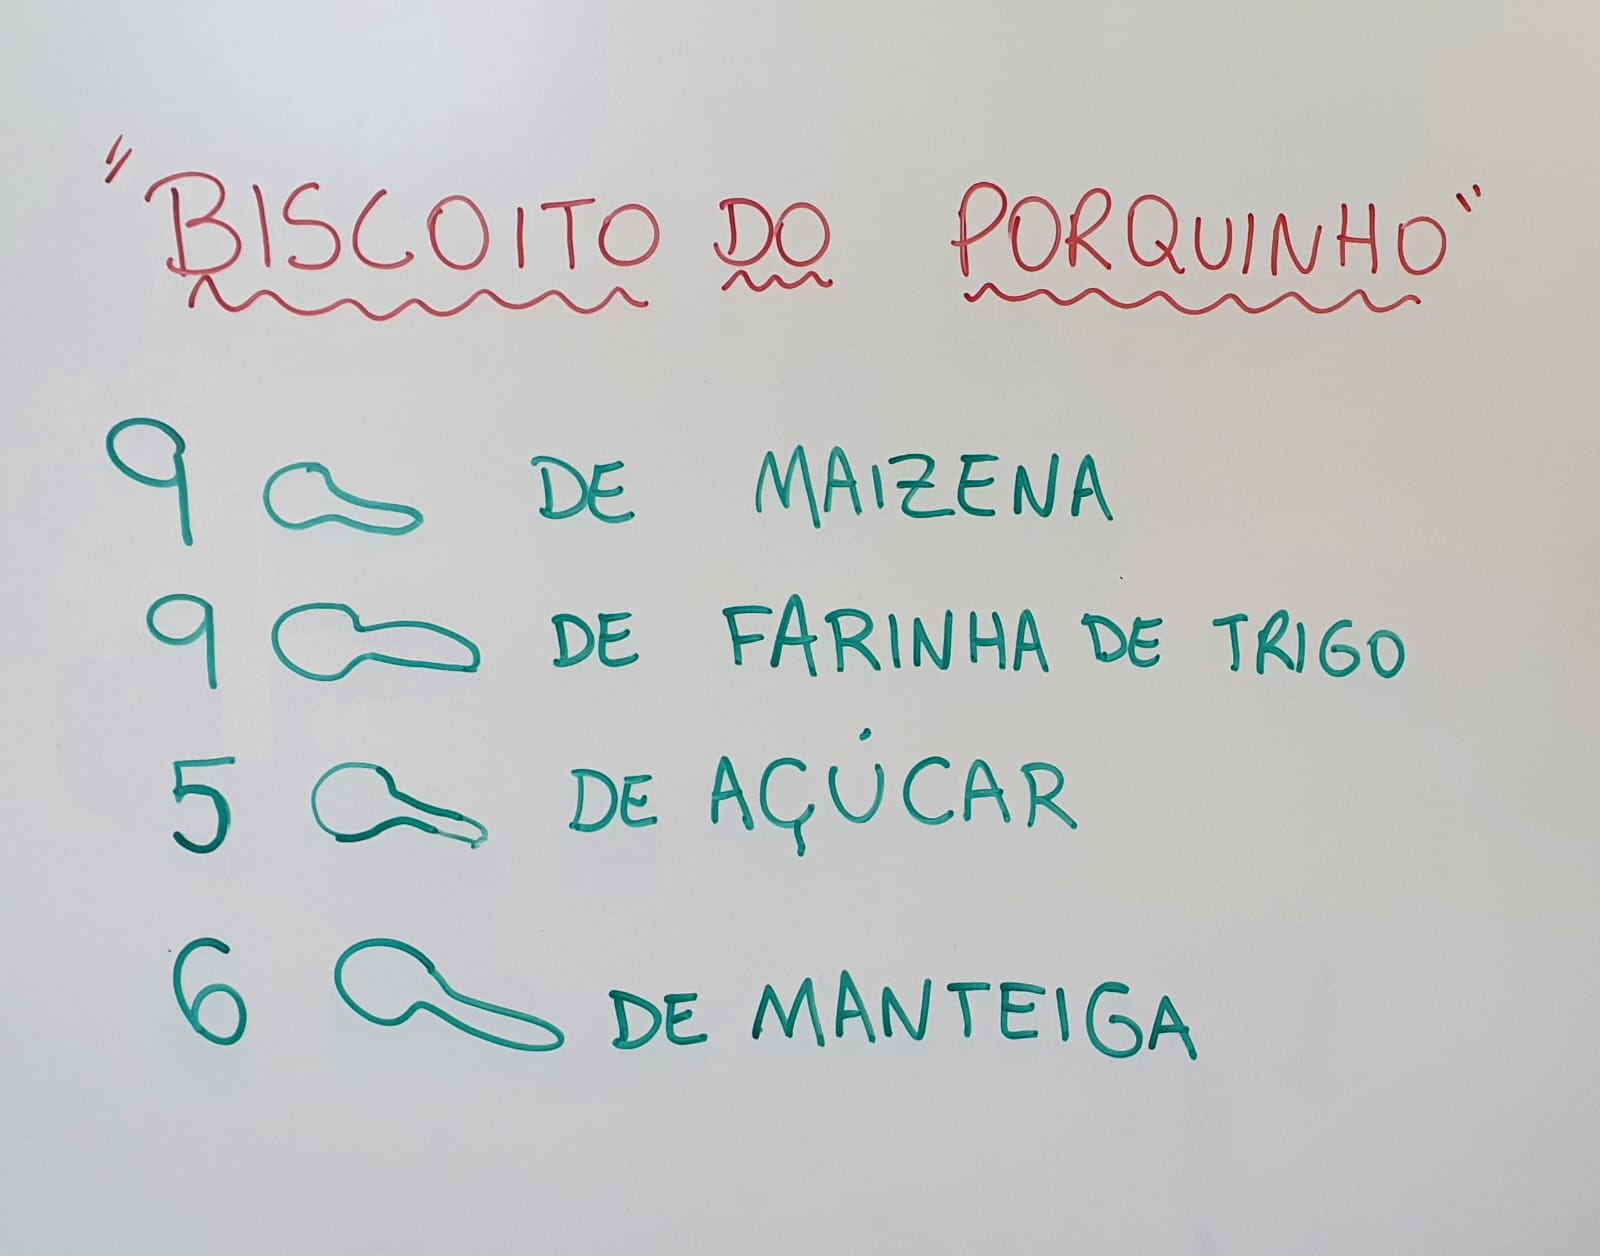 "BISCOITO DO PORQUINHO"
9 DE MAIZENA
9 DE FARINHA DE TRIGO
5 DE AÇÚCAR
6 DE MANTEIGA